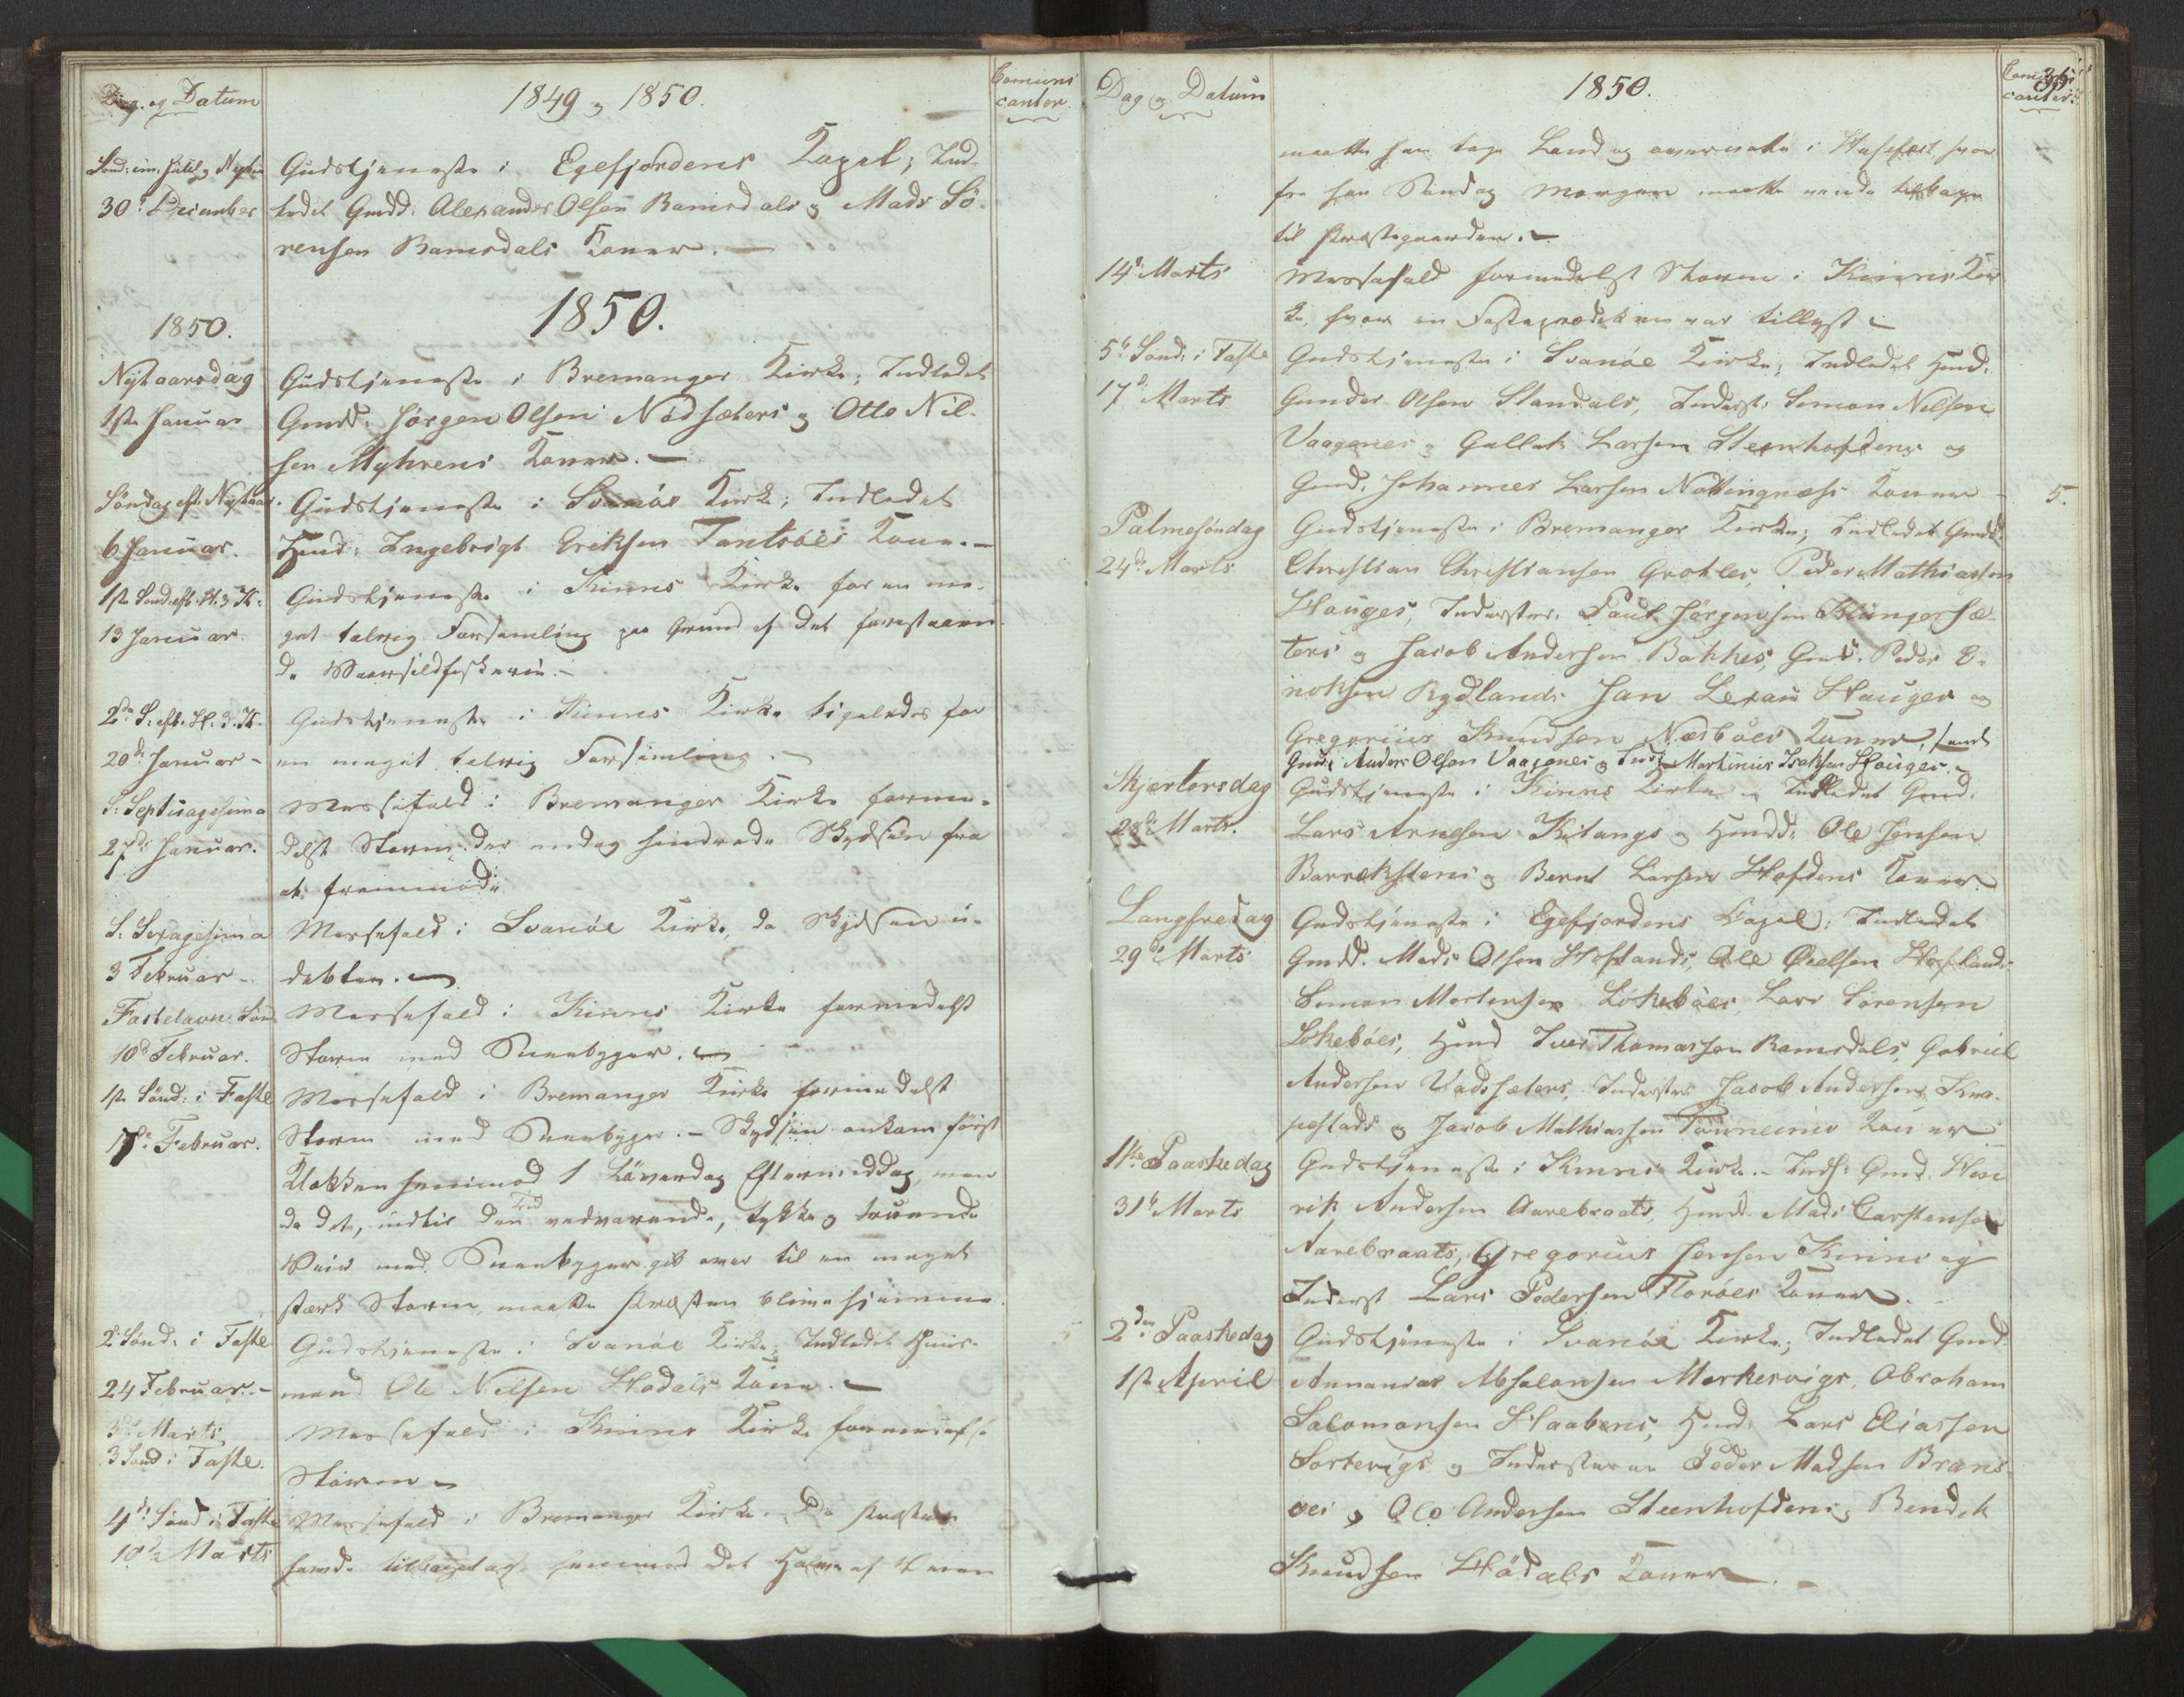 Dag og Datum
1849 og 1850.
Communi
canter.
Sönd: im: Juul og Nytaar
30te December
Gudstjeneste i Egefjordens Kapel; Ind-
ledet Gmdd: Alexander Olsen Ramsdals og Mads Sö-
rensen Ramsdals Koner. —
1850.
1850.
Nytaarsdag
1ste Januar
Gudstjeneste i Bremanger Kirke; Indledet
Gmdd: Jörgen Olsen Nödsæters og Otto Nil-
sen Myhrens Koner. —
Söndag eft. Nytaar.
6 Januar.
Gudstjeneste i Svanöe Kirke; Indledet
Hmd: Ingebrigt Eriksen Tantröes Kone. —
1ste Sönd. eft. H. 3 K:
13 Januar.
Gudstjeneste i Kinns Kirke for en me-
get talrig Forsamling paa Grund af det forestaaen-
de Vaarsildfiskerie. —
2den S: eft. H. 3. K.
20de Januar —
Gudstjeneste i Kinns Kirke ligeledes for
en meget talrig Forsamling. —
S: Septuagesima
27de Januar.
Messefald i Bremanger Kirke forme-
delst Storm, der endog hindrede Skydsen fra
at fremmöde
S: Sexagesima
3 Februar —
Messefald i Svanöe Kirke, da Skydsen u-
deblev. —
Fastelavns Sönd
10de Februar.
Messefald i Kinns Kirke formedelst
Storm med Sneebyger. —
1ste Sönd: i Faste
17de Februar.
Messefald i Bremanger Kirke formedelst
Storm med Sneebyger. — Skydsen ankom först
Klokken henimod 1 Löverdag Eftermiddag, men
da det, indtil den Tid vedvarende, tykke og truende
Veir med Sneebyger gik over til en meget
stærk Storm, maatte Præsten blive hjemme.
2 Sönd: i Faste
24 Februar. —
Gudstjeneste i Svanöe Kirke; Indledet Huus-
mand Ole Nilsen Stadals Kone. —
3de Marts
3 Sönd i Faste.
Messefald i Kinns Kirke formedelst
Storm —
4de Sönd i Faste
10de Marts
Messefald i Bremanger Kirke. Da Præsten
havde tilbagelagt henimod det Halve af Veien
Dag og Datum
1850.
Communi
canter.
36
maatte han tage Land og overnatte i hvor
fra han Söndag Morgen maatte vende tilbage
til Præstegaarden. —
14de Marts
Messefald formedelst Storm i Kinns Kir
ke, hvor en Fasteprædiken var tillyst —
5te Sönd: i Faste
17de Marts
Gudstjeneste i Svanöe Kirke; Indledet Hmd.
Gunder Olsen Standals, Inderst: Simon Nilsen
Vaagenes og Gullak Larsen Steenhofdens og
Gmd. Johannes Larsen Nöttingnæss Koner —
5.
Palmesöndag
24de Marts
Gudstjeneste i Bremanger Kirke; Indledet Gmdd.
Christian Christiansen Grotles, Peder Mathiassen
Hauges, Inderster: Paul Jörgensen Klungersæ-
ters og Jacob Andersen Bakkes, Gmd. Peder E-
noksen Rydlands Jan Lexau Hauges og
Gregorius Knudsen Nædböes Koner, samt
Gmd: Anders Olsen Vaagenes og Inds: Martinius Isaksen Hauges. —
Skjertorsdag
28de Marts.
Gudstjeneste i Kinns Kirke — Indledet Gmd.
Lars Arnesen Kitangs og Hmdd: Ole Jensen
Barrekstens og Bernt Larsen Hofdens Koner.
Langfredag
29de Marts
Gudstjeneste i Egefjordens Capel: Indledet
Gmdd. Mads Olsen Hoflands, Ole Öielsen Hoflands
Simon Mortensen Lökeböes, Lars Sörensen
Lökeböes, Hmd Iver Thomassen Ramsdals, Gabriel
Andersen Vadsæters, Inderster Jacob Andersen Kna-
pestads og Jacob Mathiassen Tönneimes Koner
1ste Paaskedag
31te Marts
Gudstjeneste i Kinns Kirke. — Indl: Gmd. Hen
rik Andersen Aarebraats, Hmdd. Mads Carstensen
Aarebraats, Gregorius Jensen Kinns og
Inderst Lars Pedersen Floröes Koner.
2den Paaskedag
1ste April
Gudstjeneste i Svanöe Kirke; Indledet Gmd.
Annanias Absalonsen Markevigs, Abraham
Salomonsen Staabens, Hmd: Lars Eliassen
Sortevigs og Inderstene Peder Madsen Brans
öes og Ole Andersen Steenhofdens, Bendik
Knudsen Stödals Koner. —